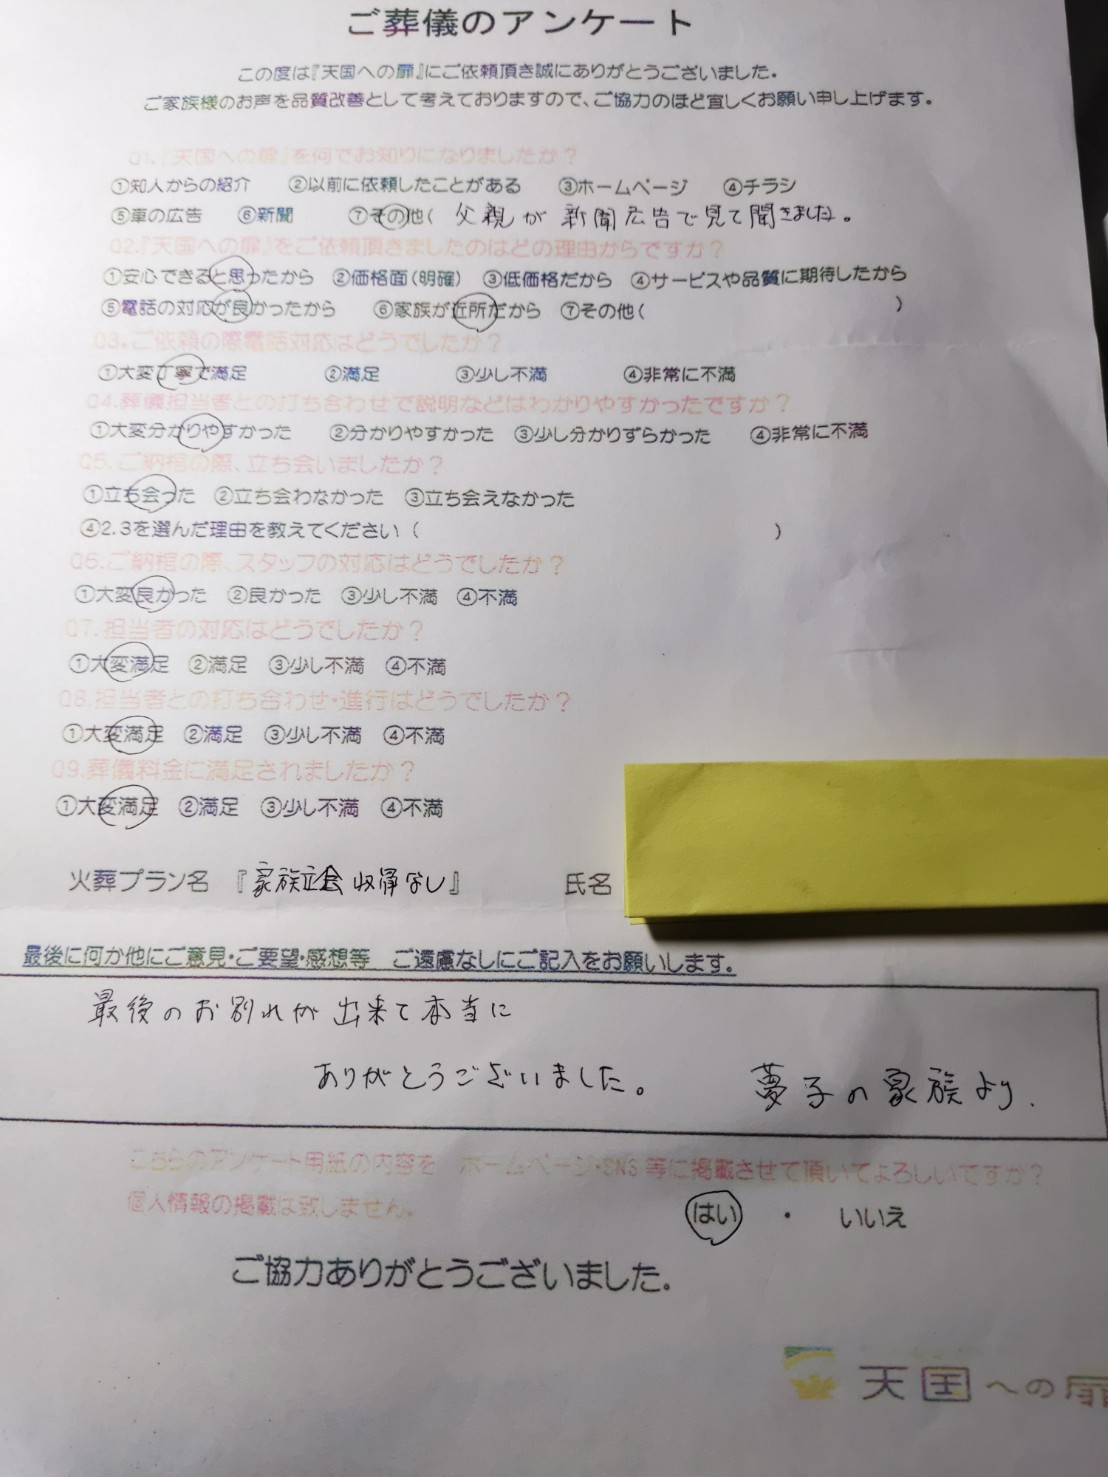 ご葬儀のアンケート
この度は『天国への扉』にご依頼頂き誠にありがとうございました。
ご家族様のお声を品質改善として考えておりますので、ご協力のほど宜しくお願い申し上げます。
Q1.『天国への扉』を何でお知りになりましたか？
①知人からの紹介 ②以前に依頼したことがある ③ホームページ ④チラシ
⑤車の広告 ⑥新聞 ⑦その他( 父親が新聞広告で見て聞きました。
Q2.『天国への扉』をご依頼頂きましたのはどの理由からですか？
①安心できると思ったから ②価格面(明確) ③低価格だから ④サービスや品質に期待したから
⑤電話の対応が良かったから ⑥家族が近所だから ⑦その他( )
Q3.ご依頼の際電話対応はどうでしたか？
①大変丁寧で満足 ②満足 ③少し不満 ④非常に不満
Q4.葬儀担当者との打ち合わせで説明などはわかりやすかったですか？
①大変分かりやすかった ②分かりやすかった ③少し分かりずらかった ④非常に不満
Q5.ご納棺の際、立ち会いましたか？
①立ち会った ②立ち会わなかった ③立ち会えなかった
④2.3を選んだ理由を教えてください ( )
Q6.ご納棺の際、スタッフの対応はどうでしたか？
①大変良かった ②良かった ③少し不満 ④不満
Q7.担当者の対応はどうでしたか？
①大変満足 ②満足 ③少し不満 ④不満
Q8.担当者との打ち合わせ・進行はどうでしたか？
①大変満足 ②満足 ③少し不満 ④不満
Q9.葬儀料金に満足されましたか？
①大変満足 ②満足 ③少し不満 ④不満
火葬プラン名 『家族立会 収骨なし』 氏名
最後に何か他にご意見・ご要望・感想等 ご遠慮なしにご記入をお願いします。
最後のお別れが出来て本当に
ありがとうございました。 夢子の家族より.
こちらのアンケート用紙の内容を ホームページ・SNS等に掲載させて頂いてよろしいですか？
個人情報の掲載は致しません。
はい ・ いいえ
ご協力ありがとうございました。
天国への扉